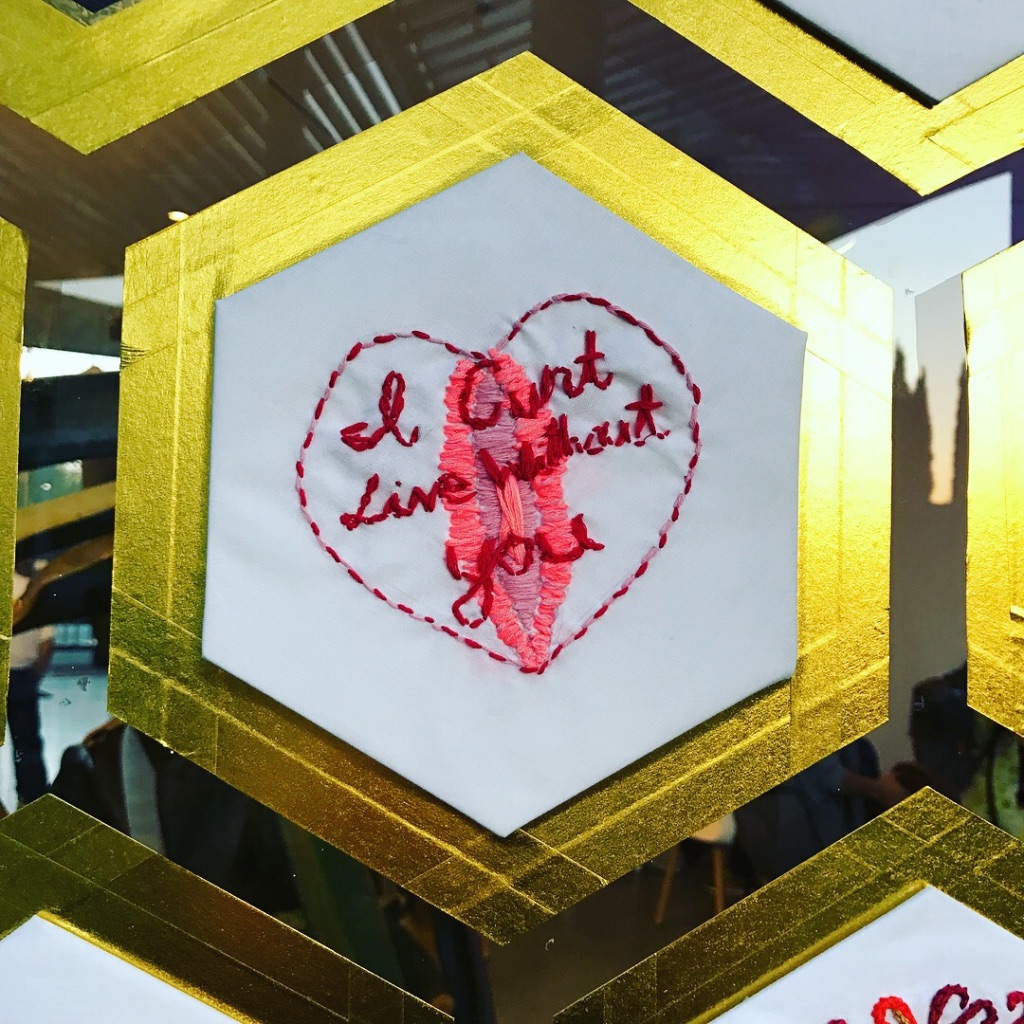 I Cunt
Live Without
You